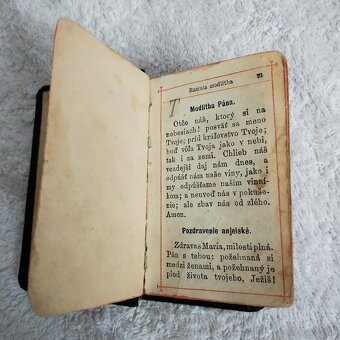 Rannia modlitba 21
Modlitba Pána.
Otče náš, ktorý si na
nebesiach! posväť sa meno
Tvoje; príď kráľovstvo Tvoje;
buď vôľa Tvoja jako v nebi,
tak i za zemi. Chlieb náš
vezdejší daj nám dnes, a
odpúšť nám naše viny, jako i
my odpúšťame našim vinní-
kom; a neuveď nás v pokuše-
nie; ale zbav nás od zlého.
Amen.
Pozdravenie anjelské.
Zdravas Maria, milosti plná.
Pán s tebou: požehnaná si
medzi ženami, a požehnaný je
plod života tvojeho, Ježiš!